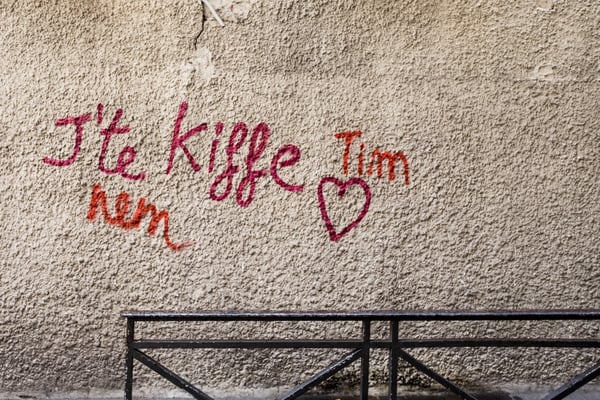 J'te kiffe Tim
nem